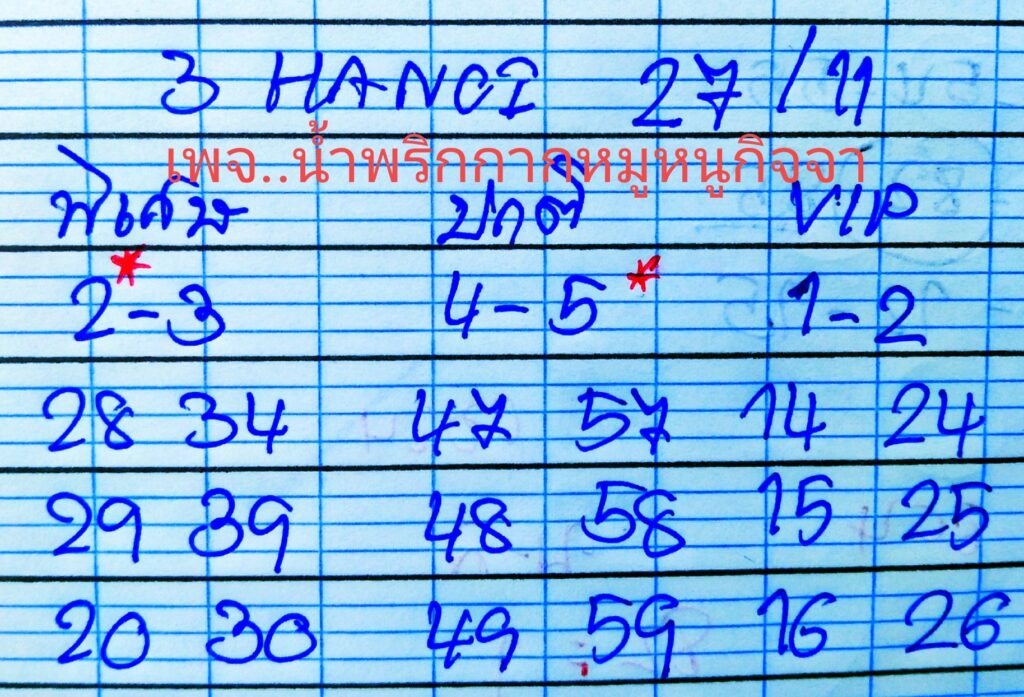 3 HANOI 27/11
เพจ..น้ำพริกกากหมูหนูกิจจา
พิเศษ ปกติ VIP
2-3 4-5 1-2
28 34 47 57 14 24
29 39 48 58 15 25
20 30 49 59 16 26